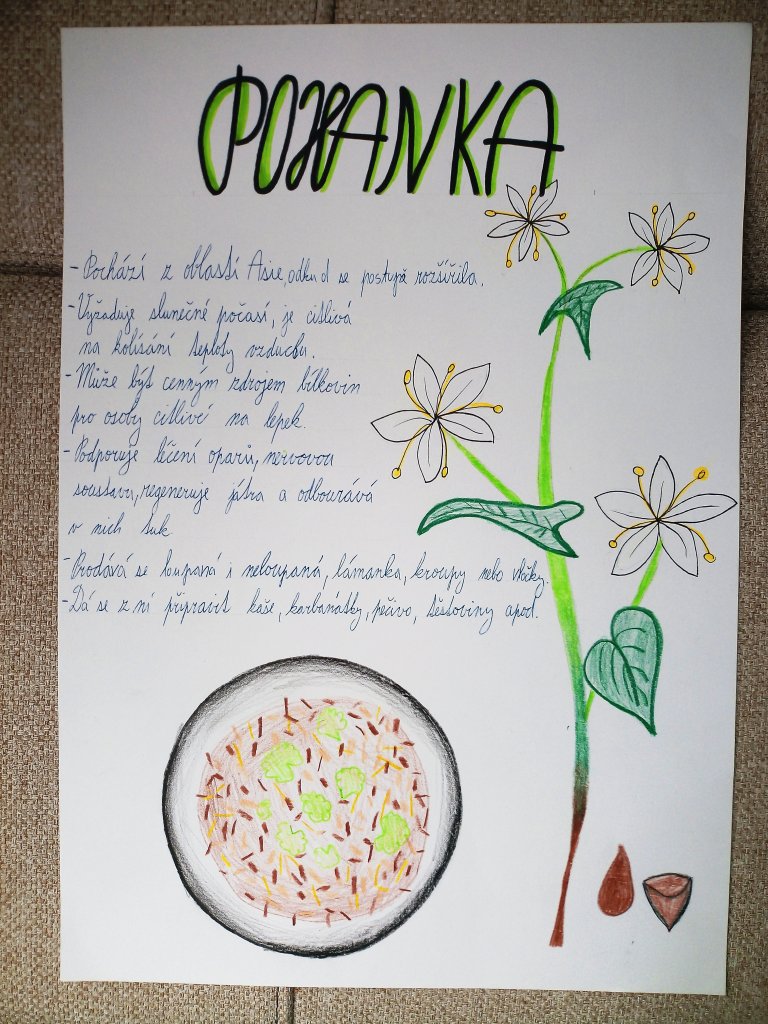 POHANKA
- Pochází z oblastí Asie, odkud se postupě rozšířila.
- Vyžaduje slunečné počasí, je citlivá
na kolísání teploty vzduchu.
- Může být cenným zdrojem bílkovin
pro osoby citlivé na lepek.
- Podporuje léčení oparů, nervovou
soustavu, regeneruje játra a odbourává
v nich tuk
- Prodává se loupaná i neloupaná, lámanka, kroupy nebo vločky.
- Dá se z ní připravit kaše, karbanátky, pečivo, těstoviny apod.